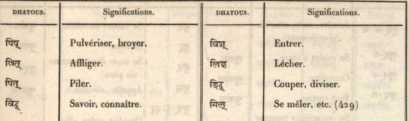 DHATOUS. Significations. DHATOUS. Significations.
पिष् Pulvériser, broyer. विश् Entrer.
Affliger. लिह् Lécher.
Piler. छिद् Couper, diviser.
विद् Savoir, connaître. मिल् Se mêler, etc. (429)